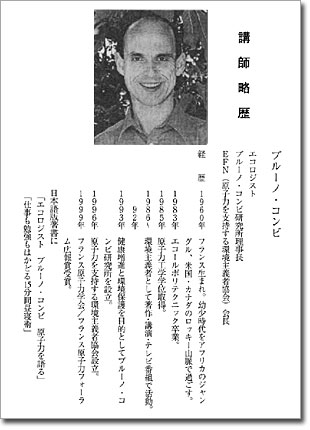 講師略歴
ブルーノ・コンビ
エコロジスト
ブルーノ・コンビ研究所理事長
EFN(原子力を支持する環境主義者協会)会長
経 歴
1960年 フランス生まれ。幼少時代をアフリカのジャン
グル、米国・カナダのロッキー山脈で過ごす。
1983年 エコールポリテクニック卒業。
1985年 原子力工学学位取得。
1986〜
92年 環境主義者として著作・講演・テレビ番組で活動。
1993年 健康増進と環境保護を目的としてブルーノ・コ
ンビ研究所を設立。
1996年 原子力を支持する環境主義者協会設立。
1999年 フランス原子力学会/フランス原子力フォーラ
ム広報賞受賞。
日本語版著書に
「エコロジスト ブルーノ・コンビ 原子力を語る」
「仕事も勉強もはかどる15分間昼寝術」